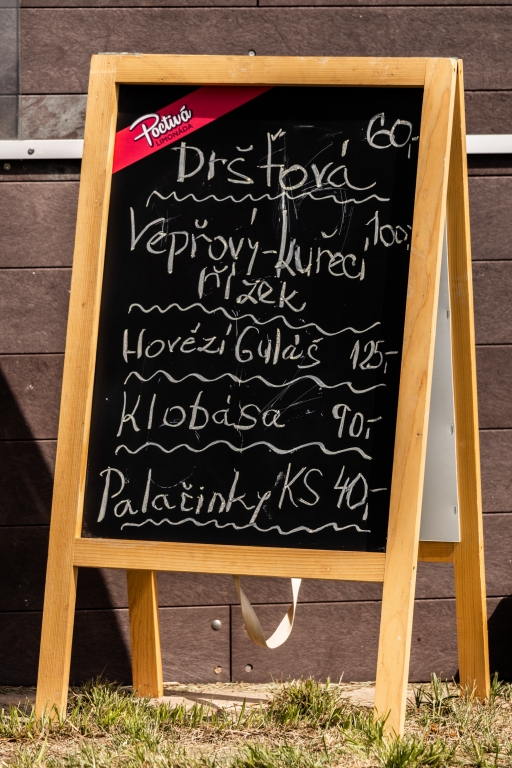 Poctivá
LIMONÁDA
60,-
Dršťová
Vepřový-kuřecí 100,-
řízek
Hovězí Guláš 125,-
Klobása 90,-
Palačinky KS 40,-